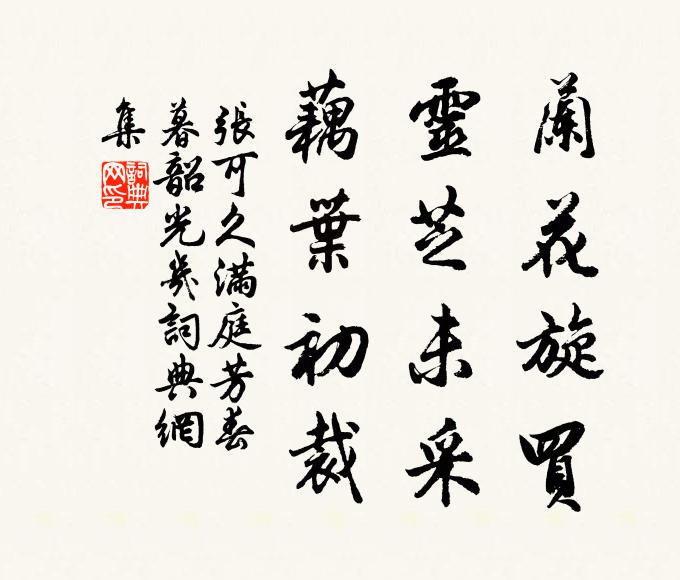 蘭花旋買
靈芝未采
藕葉初裁
張可久滿庭芳春
暮韶光幾詞典網
集
詞典網印